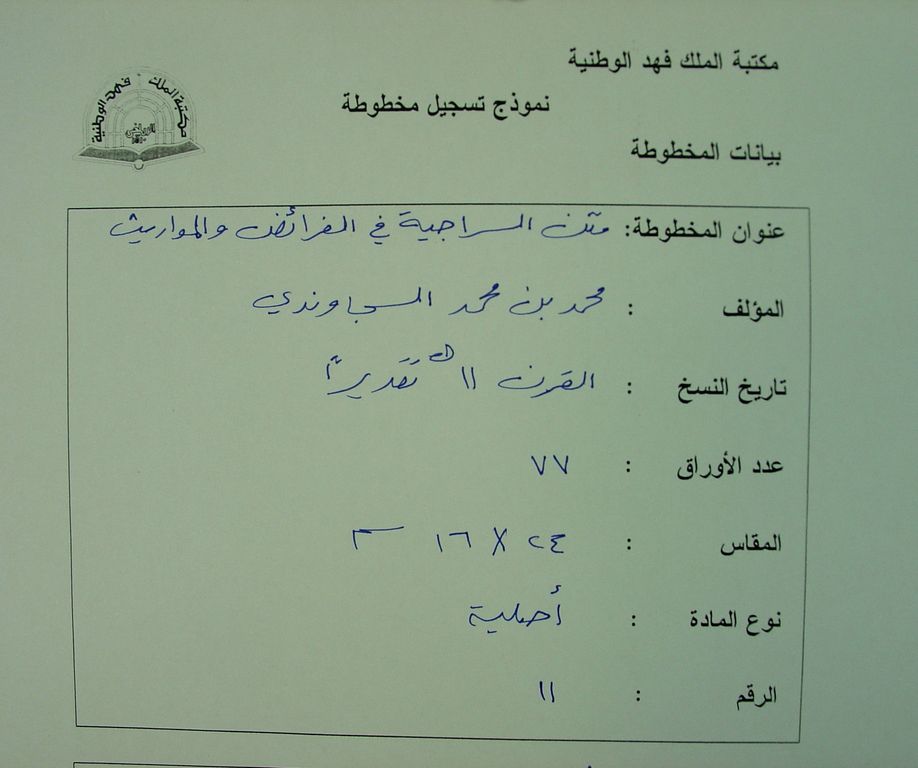 مكتبة الملك فهد الوطنية
نموذج تسجيل مخطوطة
مكتبة الملك فهد الوطنية
الرياض
بيانات المخطوطة
عنوان المخطوطة: متن السراجية في الفرائض والمواريث
المؤلف : محمد بن محمد السجاوندي
تاريخ النسخ : القرن ١١ هـ تقديرًا
عدد الأوراق : ٧٧
المقاس : ٢٤ × ١٦ سم
نوع المادة : أصلية
الرقم : ١١